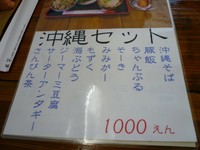 沖縄セット
沖縄そば
豚飯
ちゃんぷる
そーき
みみがー
もずく
海ぶどう
ジーマーミ豆腐
サーターアンダギー
さんぴん茶
1000えん